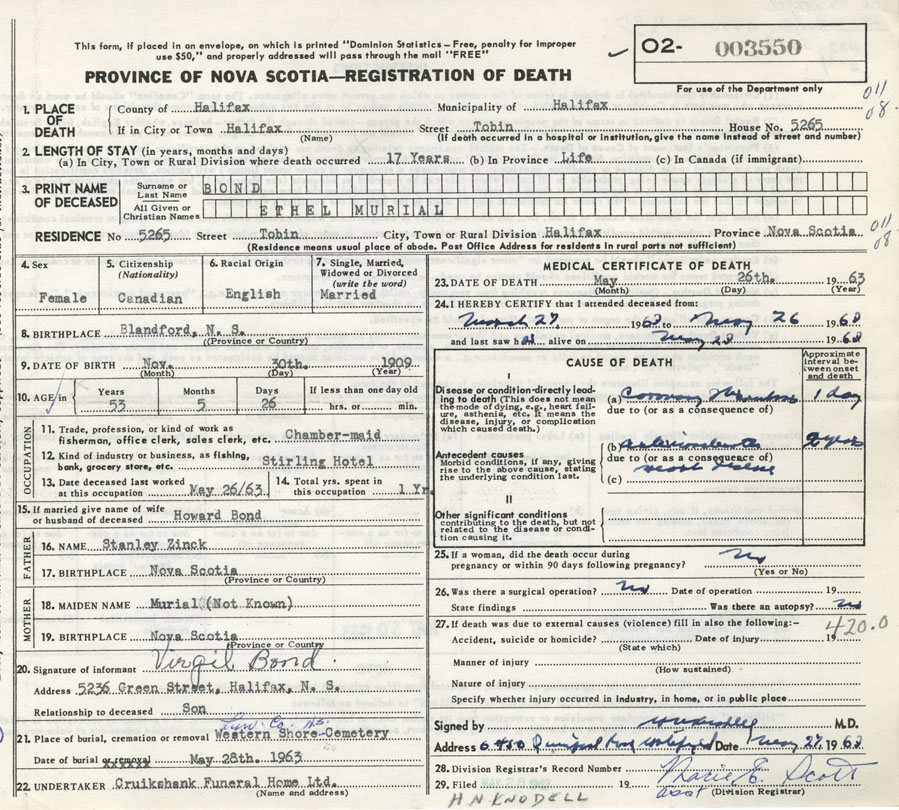 This form, if placed in an envelope, on which is printed "Dominion Statistics – Free, penalty for improper
use $50," and properly addressed will pass through the mail "FREE"
02- 003550
PROVINCE OF NOVA SCOTIA—REGISTRATION OF DEATH
For use of the Department only
011
08.
1. PLACE OF DEATH
County of Halifax Municipality of Halifax
If in City or Town Halifax Street Tobin House No. 5265
(Name) (If death occurred in a hospital or institution, give the name instead of street and number)
2. LENGTH OF STAY (in years, months and days)
(a) In City, Town or Rural Division where death occurred 17 Years (b) In Province Life (c) In Canada (if immigrant)
3. PRINT NAME OF DECEASED
Surname or Last Name BOND
All Given or Christian Names ETHEL MURIAL
011
08
RESIDENCE No 5265 Street Tobin City, Town or Rural Division Halifax Province Nova Scotia
(Residence means usual place of abode. Post Office Address for residents in rural parts not sufficient)
4. Sex Female
5. Citizenship (Nationality) Canadian
6. Racial Origin English
7. Single, Married, Widowed or Divorced (write the word) Married
8. BIRTHPLACE Blandford, N. S.
(Province or Country)
9. DATE OF BIRTH Nov. 30th. 1909
(Month) (Day) (Year)
10. AGE in Years 53 Months 5 Days 26 If less than one day old hrs. or min.
OCCUPATION
11. Trade, profession, or kind of work as
fisherman, office clerk, sales clerk, etc. Chamber-maid
12. Kind of industry or business, as fishing,
bank, grocery store, etc. Stirling Hotel
13. Date deceased last worked at this occupation May 26/63
14. Total yrs. spent in this occupation 1 Yr.
15. If married give name of wife
or husband of deceased Howard Bond
FATHER
16. NAME Stanley Zinck
17. BIRTHPLACE Nova Scotia
(Province or Country)
MOTHER
18. MAIDEN NAME Murial (Not Known)
19. BIRTHPLACE Nova Scotia
(Province or Country)
20. Signature of informant Virgil Bond
Address 5236 Green Street, Halifax, N. S.
Relationship to deceased Son
Lun. Co. N.S.
21. Place of burial, cremation or removal Western Shore-Cemetery
Date of burial or removal May 28th. 1963
22. UNDERTAKER Cruikshank Funeral Home Ltd.
(Name and address)
MEDICAL CERTIFICATE OF DEATH
23. DATE OF DEATH May 26th. 1963
(Month) (Day) (Year)
24. I HEREBY CERTIFY that I attended deceased from:
March 27, 1963 to May 26 1963
and last saw h alive on May 1963
CAUSE OF DEATH
Approximate interval between onset and death
I
Disease or condition directly leading to death (This does not mean the mode of dying, e.g., heart failure, asthenia, etc. It means the disease, injury, or complication which caused death.)
(a) Coronary Thrombosis 1 day
due to (or as a consequence of)
Antecedent causes
Morbid conditions, if any, giving rise to the above cause, stating the underlying condition last.
(b) years
due to (or as a consequence of)
heart disease
(c)
II
Other significant conditions
contributing to the death, but not related to the disease or condition causing it.
25. If a woman, did the death occur during
pregnancy or within 90 days following pregnancy? No
(Yes or No)
26. Was there a surgical operation? No Date of operation 19
State findings Was there an autopsy? No
27. If death was due to external causes (violence) fill in also the following:–
420.0
Accident, suicide or homicide? Date of injury 19
(State which)
Manner of injury
(How sustained)
Nature of injury
Specify whether injury occurred in industry, in home, or in public place
Signed by M.D.
Address Date May 27, 1963
28. Division Registrar's Record Number
29. Filed 19 Marie E. Scott
asst (Division Registrar)
H N KNODELL